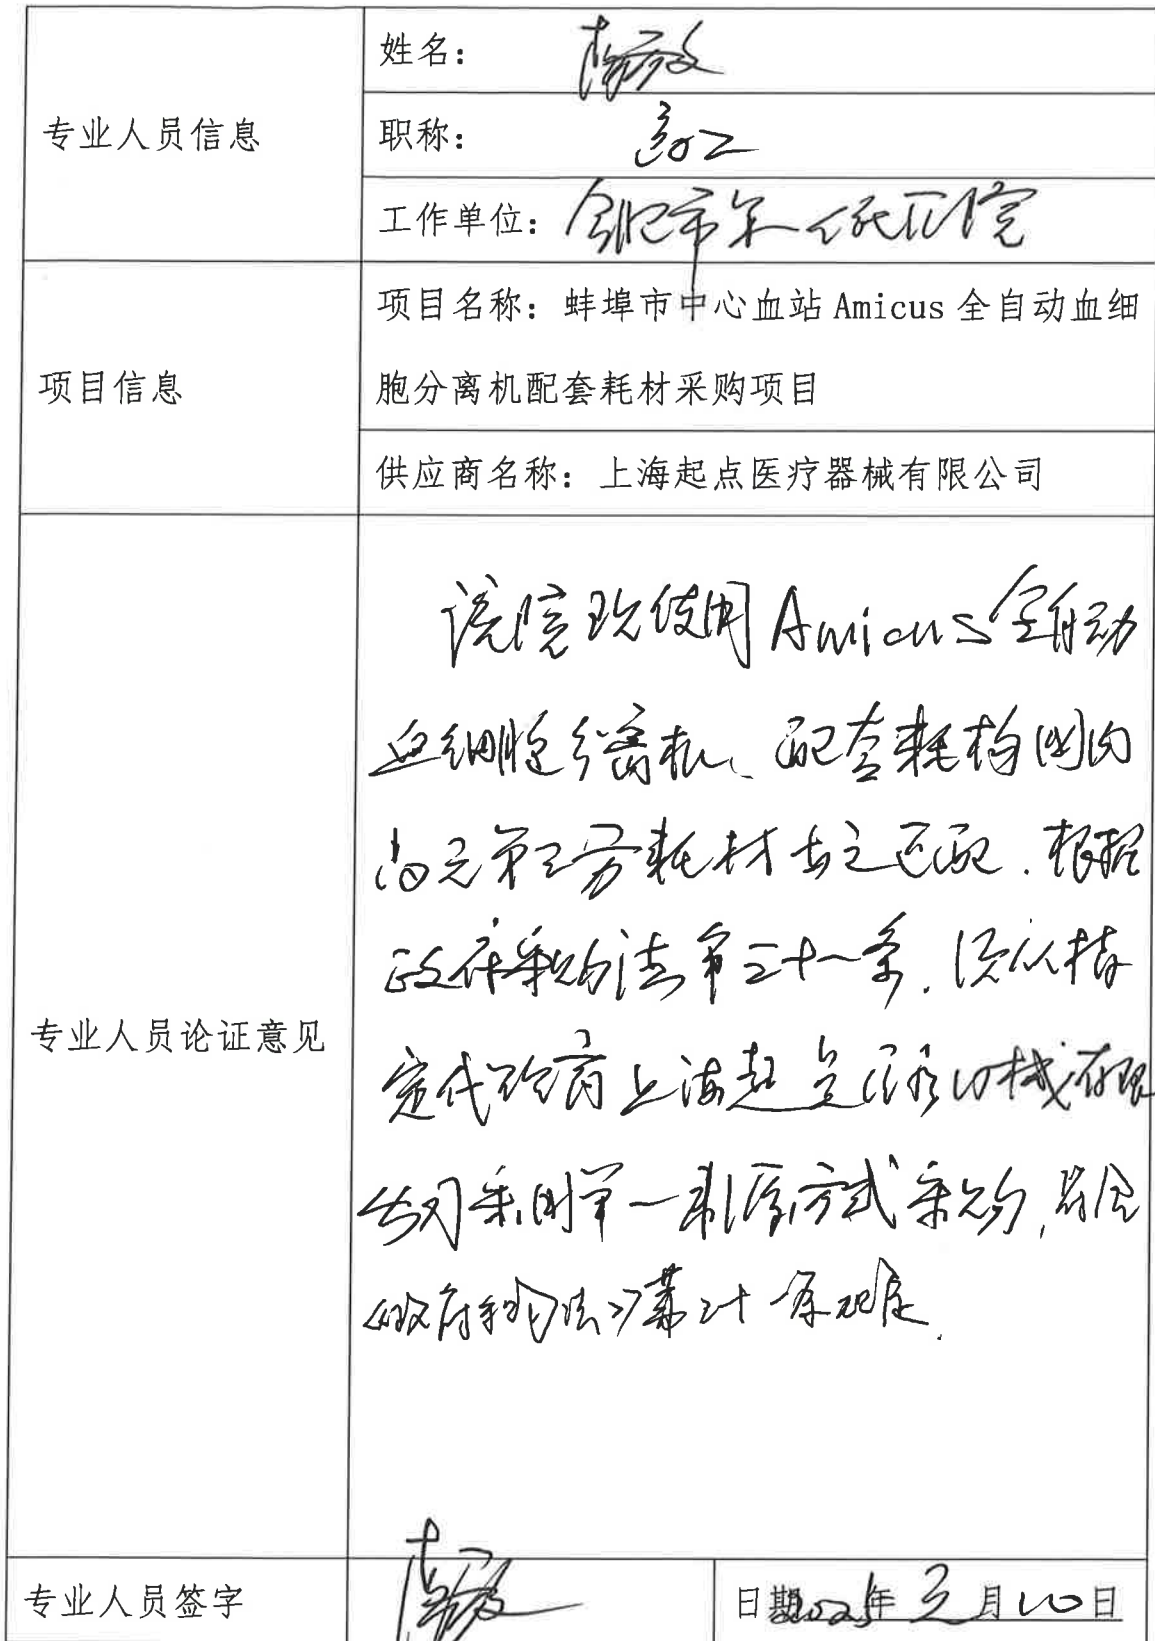 专业人员信息
姓名：
职称：高工
工作单位：合肥市第一人民医院
项目信息
项目名称：蚌埠市中心血站 Amicus 全自动血细
胞分离机配套耗材采购项目
供应商名称：上海起点医疗器械有限公司
专业人员论证意见
该院现使用 Amicus 全自动
血细胞分离机、配套耗材国内
尚无第三方耗材与之匹配．根据
政府采购法第三十一条．须从指
定代理商上海起点医疗器械有限
公司采用单一来源方式采购，符合
《政府采购法》第三十一条规定．
专业人员签字
日期2025年元月10日